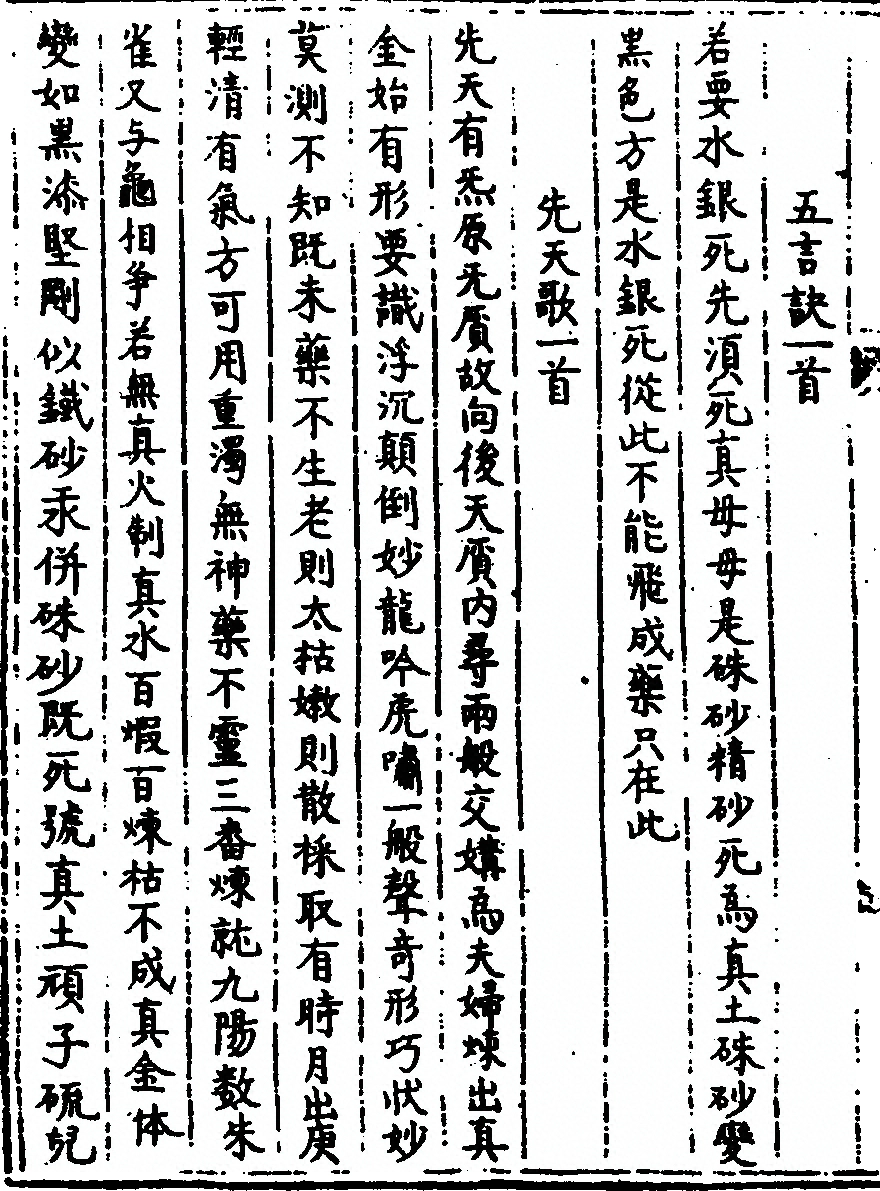 五言訣一首
若要水銀死先須死真母母是硃砂精砂死為真土硃砂變
黑色方是水銀死從此不能飛成藥只在此
先天歌一首
先天有炁原无質故向後天質内尋兩般交媾為夫婦煉出真
金始有形要識浮沉顛倒妙龍吟虎嘯一般聲奇形巧狀妙
莫測不知既未藥不生老則太枯嫩則散採取有時月出庚
輕清有氣方可用重濁無神藥不靈三番煉就九陽数朱
雀又与龜相争若無真火制真水百煆百煉枯不成真金体
變如黑漆堅剛似鐵砂汞併硃砂既死號真土頑子硫兒